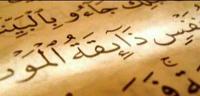 جَآءُو بِالْبَيِّنَ
نَفْسٍ ذَآئِقَةُ الْمَوْ